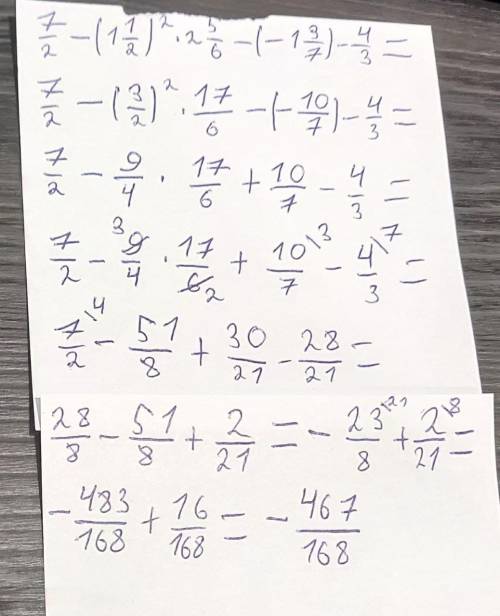 7/2 − (1 1/2)² · 2 5/6 − (−1 3/7) − 4/3 =
7/2 − (3/2)² · 17/6 − (−10/7) − 4/3 =
7/2 − 9/4 · 17/6 + 10/7 − 4/3 =
7/2 − ³9/4 · 17/6₂ + 10\3/7 − 4\7/3 =
7\4/2 − 51/8 + 30/21 − 28/21 =
28/8 − 51/8 + 2/21 = − 23\21/8 + 2\8/21 =
− 483/168 + 16/168 = − 467/168